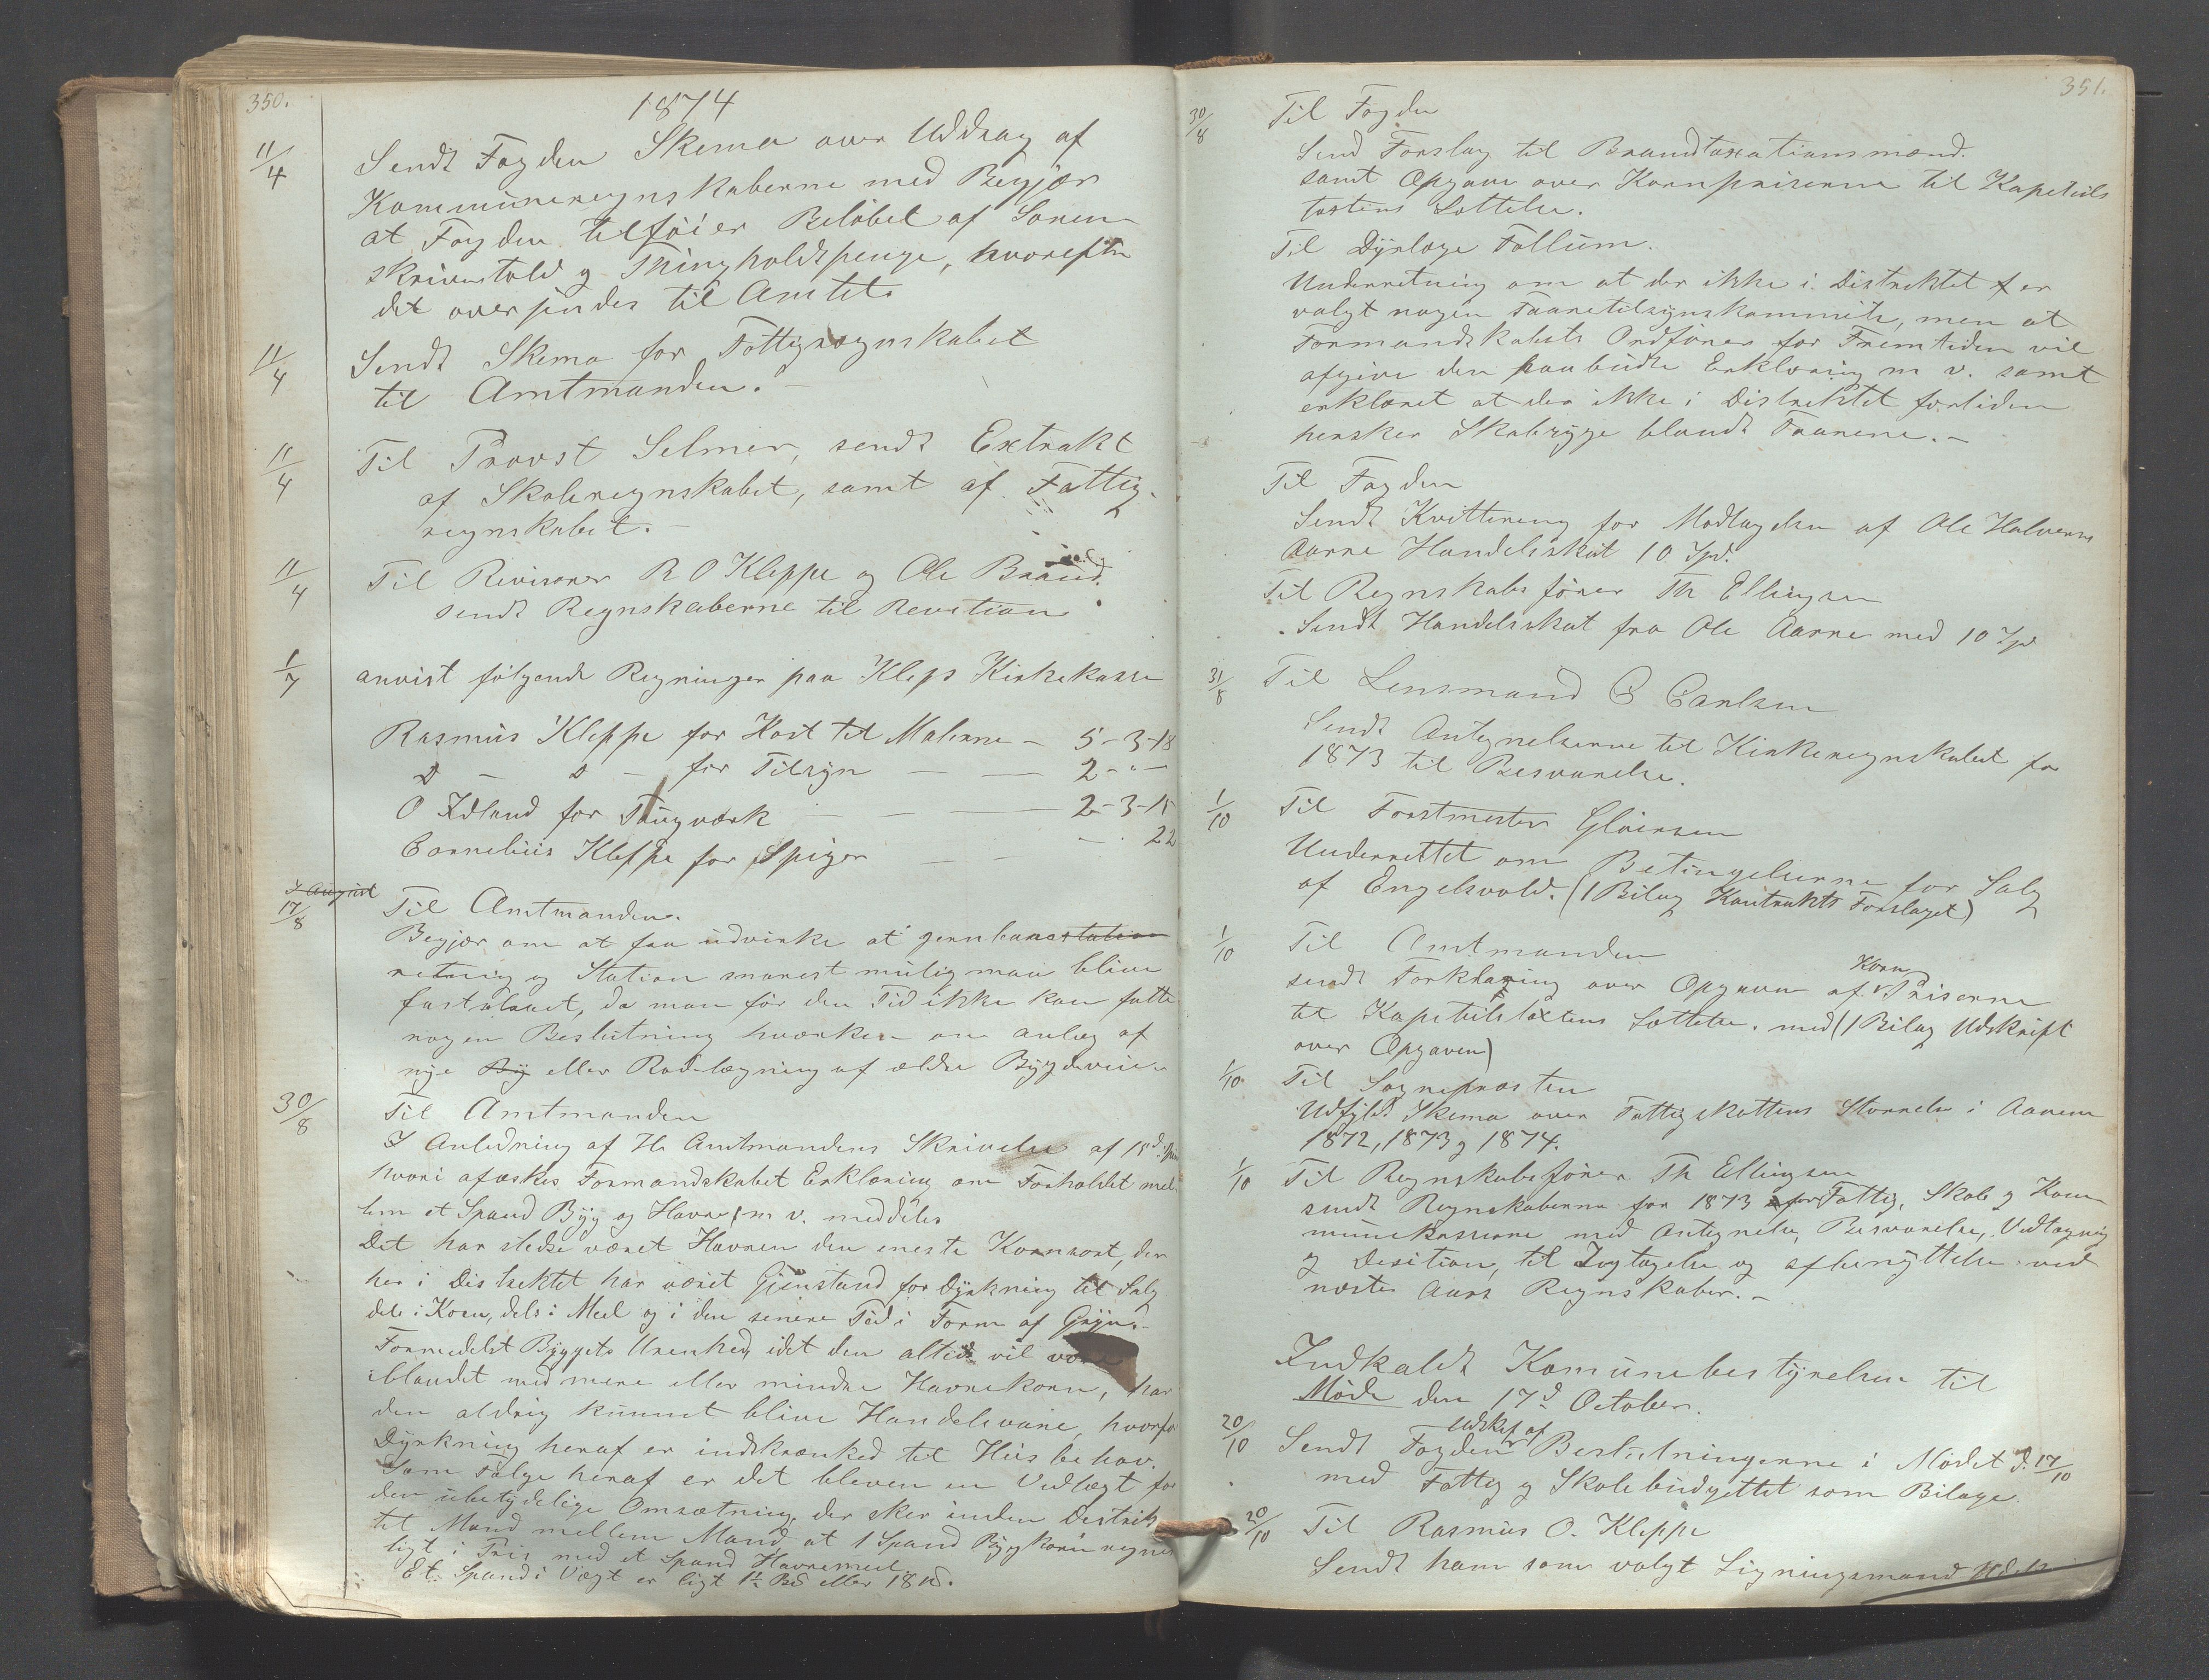 350.
1874
11/4 Sendt Fogden Skema over Uddrag af
Kommuneregnskaberne med Begjær
at Fogden tilføier Beløbet af Soren-
skrivertold og Thingholdspenge, hvorefter
det oversendes til Amtet.
11/4 Sendt Skema for Fattigregnskabet
til Amtmanden. -
11/4 Til Provst Selmer, sendt Extrakt
af Skoleregnskabet, samt af Fattig-
regnskabet. -
11/4 Til Revisorer R O Kleppe og Ole Braud
sendt Regnskaberne til Revition
1/7 anvist følgende Regninger paa Kleps Kirkekasse
Rasmus Kleppe for Kost til Malerne - 5-3-18
D - D - for Tilsyn - - 2-"-
O Idland for Taugværk - - - 2-3-15
Cornelius Kleppe for Spiger - - - 22
I August
17/8 Til Amtmanden.
Begjær om at faa udvirke at jernbanestation
retning og Station snarest mulig maa blive
fastsat, da man før den Tid ikke kan fatte
nogen Beslutning hverken om anlæg af
nye By eller Rodelægning af ældre Bygdeveie.
30/8 Til Amtmanden
I Anledning af Hr Amtmandens Skrivelse af 15d
hvori afæskes Formandskabet Erklæring om Forholdet mel-
lem et Spand Byg og Havre m v. meddeles
Det har stedse været Havren den eneste Kornsort, der
her i Distrektet har været Gjenstand for Dyrkning til Salg
dels i Korn, dels i Meel og i den senere Tid i Form af Gryn.-
Formedelst Byggets Urenhed, idet den altid vil være
iblandet med mere eller mindre Havrekorn, har
den aldrig kunnet blive Handelsvare, hvorfor
Dyrkning heraf er indskrænked til Huusbehov.
Som Følge heraf er det bleven en Vedtægt for
den ubetydelige Omsætning, der sker inden Destrik-
tet Mand mellem Mand, at 1 Spand Bygkorn regnes
ligt i Pris med et Spand Havremeel.
Et Spand i Vægt er ligt 1½ Bd eller 18 ℔.
351.
30/8 Til Fogden
Send Forslag til Brandtaxationsmænd.
samt Opgave over Kornpriserne til Kapitels
taxtens Sættelse.
Til Dyrlæge Follum.
Underretning om at der ikke i Distriktet er
valgt nogen Faaretilsynskommite, men at
Formandskabets Ordfører for Fremtiden vil
afgive den paabudte Erklæring m v. samt
erklæret at der ikke i Distriktet for tiden
hersker Skabsyge blandt Faarene. -
Til Fogden
Sendt Kvittering for Modtagelsen af Ole Halvorsen
Aarre Handelsskat 10 Spd.
Til Regnskabsfører Th Ellingsen
Sendt Handelsskat fra Ole Aarre med 10 Spd
31/8 Til Lensmand C Carlsen
Sendt Antegnelserne til Kirkeregnskabet for
1873 til Besvarelse.
1/10 Til Forstmester Gløersen
Underrettet om Betingelserne for Salg
af Engelsvold. (1 Bilag Kontrakts Forslaget)
1/10 Til Amtmanden
sendt Forklaring over Opgaven af Korn Priserne
til Kapitelstaxtens Sættelse. med (1 Bilag Udskrift
over Opgaven)
1/10 Til Sognepræsten
Udfyldt Skema over Fattigskattens Størrelse i Aarene
1872, 1873 og 1874.
1/10 Til Regnskabsfører Th Ellingsen
sendt Regnskaberne for 1873 for Fattig, Skole og Kom-
munekasserne med Antegnelse, Besvarelse, Vedtagning
og Desition, til Iagttagelse og afbenyttelse ved
næste Aars Regnskaber. -
Indkaldt Komunebestyrelsen til
Møde den 17d October.
20/10 Sendt Fogden Udskrt af Beslutningerne i Mødet d. 17/10
med Fattig og Skolebudgettet som Bilage.
20/10 Til Rasmus O. Kleppe
Sendt ham som valgt Ligningsmand